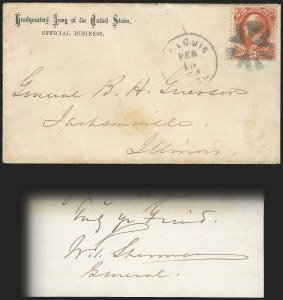 Headquarters Army of the United States,
OFFICIAL BUSINESS.
LOUIS
FEB
General B. H. Grierson
Jacksonville
Illinois.
Friend.
W. T. Sherman
General.